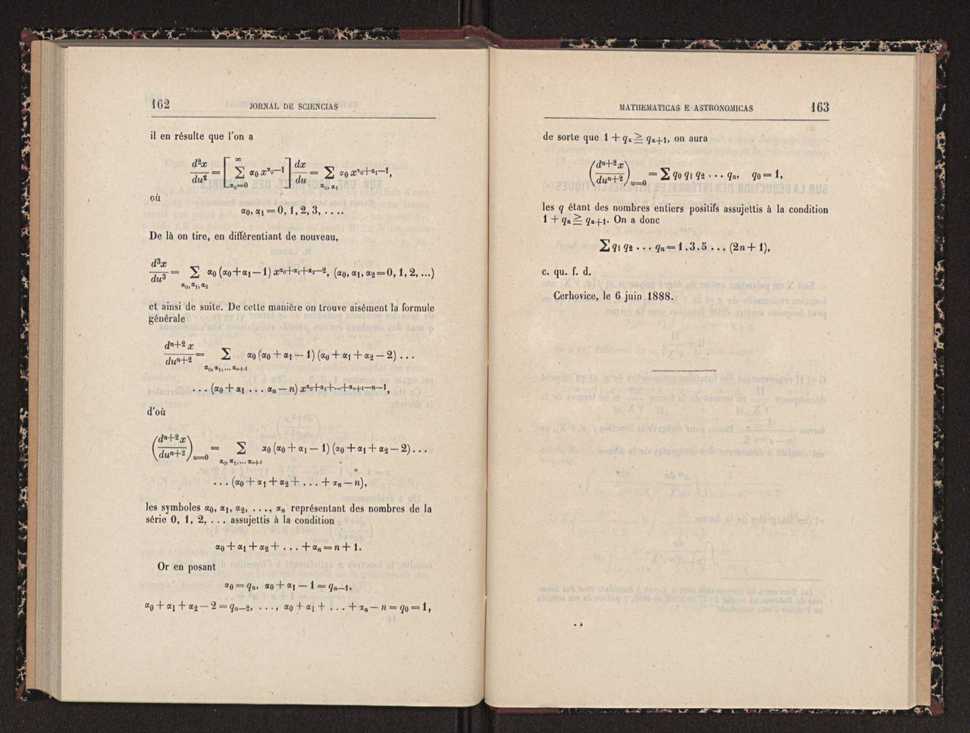 162 JORNAL DE SCIENCIAS
il en résulte que l'on a
d²x/du² = [ Σ_{α₀=0}^{∞} α₀ x^{α₀−1} ] dx/du = Σ_{α₀, α₁} α₀ x^{α₀+α₁−1},
où
α₀, α₁ = 0, 1, 2, 3, ....
De là on tire, en différentiant de nouveau,
d³x/du³ = Σ_{α₀, α₁, α₂} α₀ (α₀+α₁−1) x^{α₀+α₁+α₂−2}, (α₀, α₁, α₂=0, 1, 2, ...)
et ainsi de suite. De cette manière on trouve aisément la formule
générale
d^{n+2}x/du^{n+2} = Σ_{α₀, α₁, ... α_{n+1}} α₀ (α₀ + α₁ − 1) (α₀ + α₁ + α₂ − 2) ...
... (α₀ + α₁ ... α_n − n) x^{α₀+α₁+...+α_{n+1}−n−1},
d'où
(d^{n+2}x/du^{n+2})_{u=0} = Σ_{α₀, α₁, ... α_{n+1}} α₀ (α₀ + α₁ − 1) (α₀ + α₁ + α₂ − 2) ...
... (α₀ + α₁ + α₂ + ... + α_n − n),
les symboles α₀, α₁, α₂, ..., α_n représentant des nombres de la
série 0, 1, 2, ... assujettis à la condition
α₀ + α₁ + α₂ + ... + α_n = n + 1.
Or en posant
α₀ = q_n, α₀ + α₁ − 1 = q_{n−1},
α₀ + α₁ + α₂ − 2 = q_{n−2}, ..., α₀ + α₁ + ... + α_n − n = q₀ = 1,
MATHEMATICAS E ASTRONOMICAS 163
de sorte que 1 + q_x ≧ q_{x+1}, on aura
(d^{n+2}x/du^{n+2})_{u=0} = Σ q₀ q₁ q₂ ... q_n, q₀ = 1,
les q étant des nombres entiers positifs assujettis à la condition
1 + q_n ≧ q_{n+1}. On a donc
Σ q₁ q₂ ... q_n = 1.3.5 ... (2n + 1),
c. qu. f. d.
Cerhovice, le 6 juin 1888.